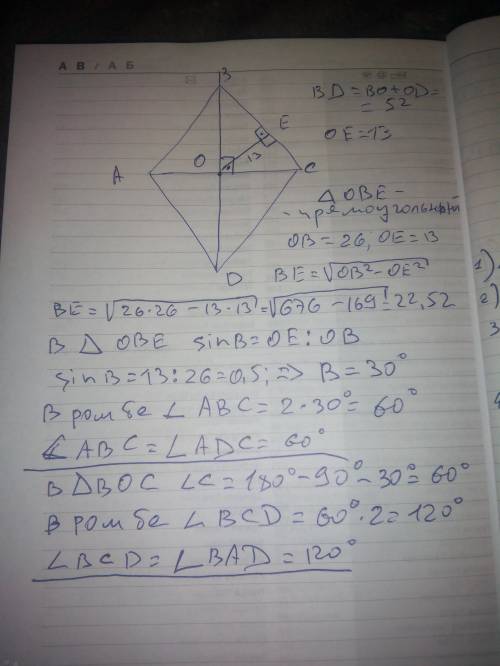 А В / А Б
B
BD = BO + OD =
= 52
E
OE = 13
A
O
13
C
△ OBE -
- прямоугольный
OB = 26; OE = 13
D
BE = √OB² - OE²
BE = √26·26 - 13·13 = √676 - 169 = 22,52
В △ OBE sinB = OE : OB
sinB = 13 : 26 = 0,5; => B = 30°
В ромбе ∠ ABC = 2·30° = 60°
∠ABC = ∠ADC = 60°
В △BOC ∠C = 180° - 90° - 30° = 60°
В ромбе ∠BCD = 60°·2 = 120°
∠BCD = ∠BAD = 120°
1)
2)
3